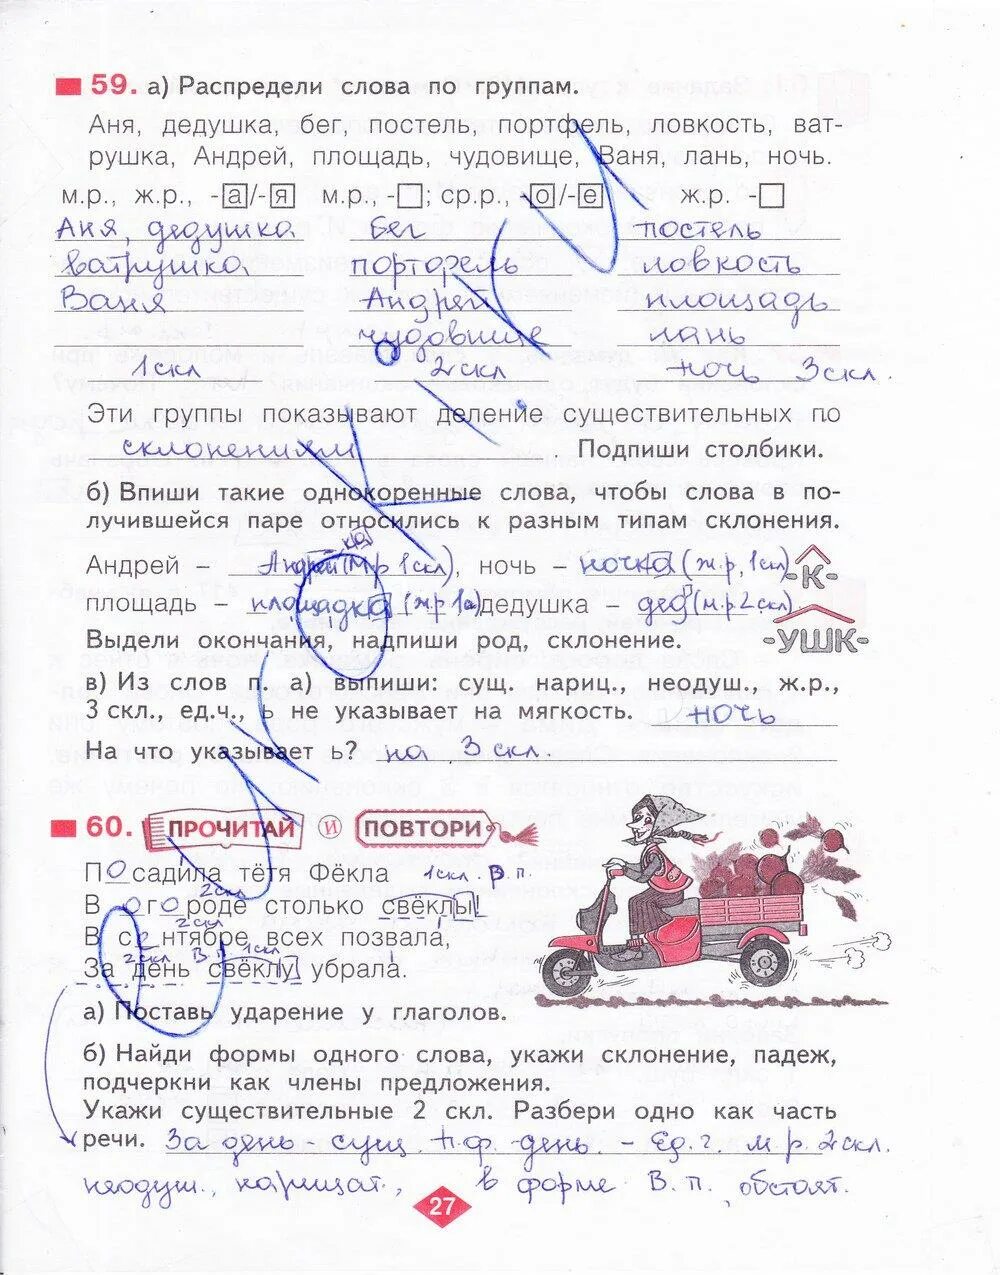 59. а) Распредели слова по группам.
Аня, дедушка, бег, постель, портфель, ловкость, ват-
рушка, Андрей, площадь, чудовище, Ваня, лань, ночь.
м.р., ж.р., -а/-я м.р., -□; ср.р., -о/-е ж.р. -□
Аня, дедушка Бег постель
ватрушка портфель ловкость
Ваня Андрей площадь
чудовище лань
1 скл 2 скл ночь 3 скл.
Эти группы показывают деление существительных по
склонениям. Подпиши столбики.
б) Впиши такие однокоренные слова, чтобы слова в по-
лучившейся паре относились к разным типам склонения.
Андрей – (м.р 1 скл), ночь – ночка (ж.р, 1скл) -К-
площадь – площадка (ж.р 1с дедушка – дед (м.р 2 скл)
Выдели окончания, надпиши род, склонение. -УШК-
в) Из слов п. а) выпиши: сущ. нариц., неодуш., ж.р.,
3 скл., ед.ч., ь не указывает на мягкость. ночь
На что указывает ь? на 3 скл.
60. ПРОЧИТАЙ И ПОВТОРИ
Посадила тётя Фёкла 1скл. В.п.
2скл
В огороде столько свёклы!
2скл
В сентябре всех позвала,
2скл В.п 1скл
За день свёклу убрала.
а) Поставь ударение у глаголов.
б) Найди формы одного слова, укажи склонение, падеж,
подчеркни как члены предложения.
Укажи существительные 2 скл. Разбери одно как часть
речи. За день - сущ. н.ф. - день. - Ед.ч. м.р. 2скл.
неодуш., нарицат., в форме В.п., обстоят.
27
УРОКИ.КИ